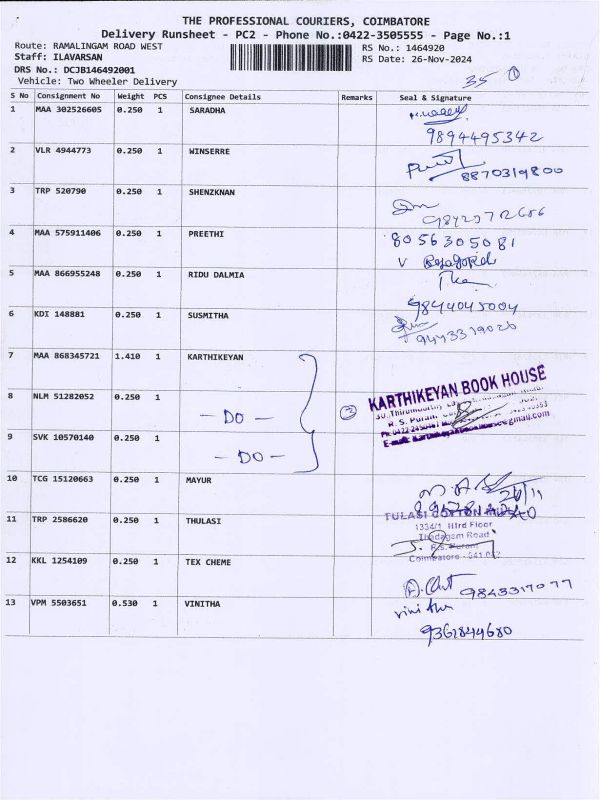 THE PROFESSIONAL COURIERS, COIMBATORE
Delivery Runsheet - PC2 - Phone No.:0422-3505555 - Page No.:1
Route: RAMALINGAM ROAD WEST RS No.: 1464920
Staff: ILAVARSAN RS Date: 26-Nov-2024
DRS No.: DCJB146492001
Vehicle: Two Wheeler Delivery
35 1
S No Consignment No Weight PCS Consignee Details Remarks Seal & Signature
1 MAA 302526605 0.250 1 SARADHA
9894495342
2 VLR 4944773 0.250 1 WINSERRE
8870319800
3 TRP 520790 0.250 1 SHENZKNAN
4 MAA 575911406 0.250 1 PREETHI 8056305081
5 MAA 866955248 0.250 1 RIDU DALMIA
9844045004
6 KDI 148881 0.250 1 SUSMITHA
9443319026
7 MAA 868345721 1.410 1 KARTHIKEYAN
KARTHIKEYAN BOOK HOUSE
8 NLM 51282052 0.250 1
3
- DO -
R. S. Puram
9 SVK 10570140 0.250 1
- DO -
10 TCG 15120663 0.250 1 MAYUR
26/11
TULASI COTTON
11 TRP 2586620 0.250 1 THULASI
1334/1 IIIrd Floor
Thadagam Road
R.S. Puram
Coimbatore - 641 002
12 KKL 1254109 0.250 1 TEX CHEME
9843317077
13 VPM 5503651 0.530 1 VINITHA
Vinitha
9361844680